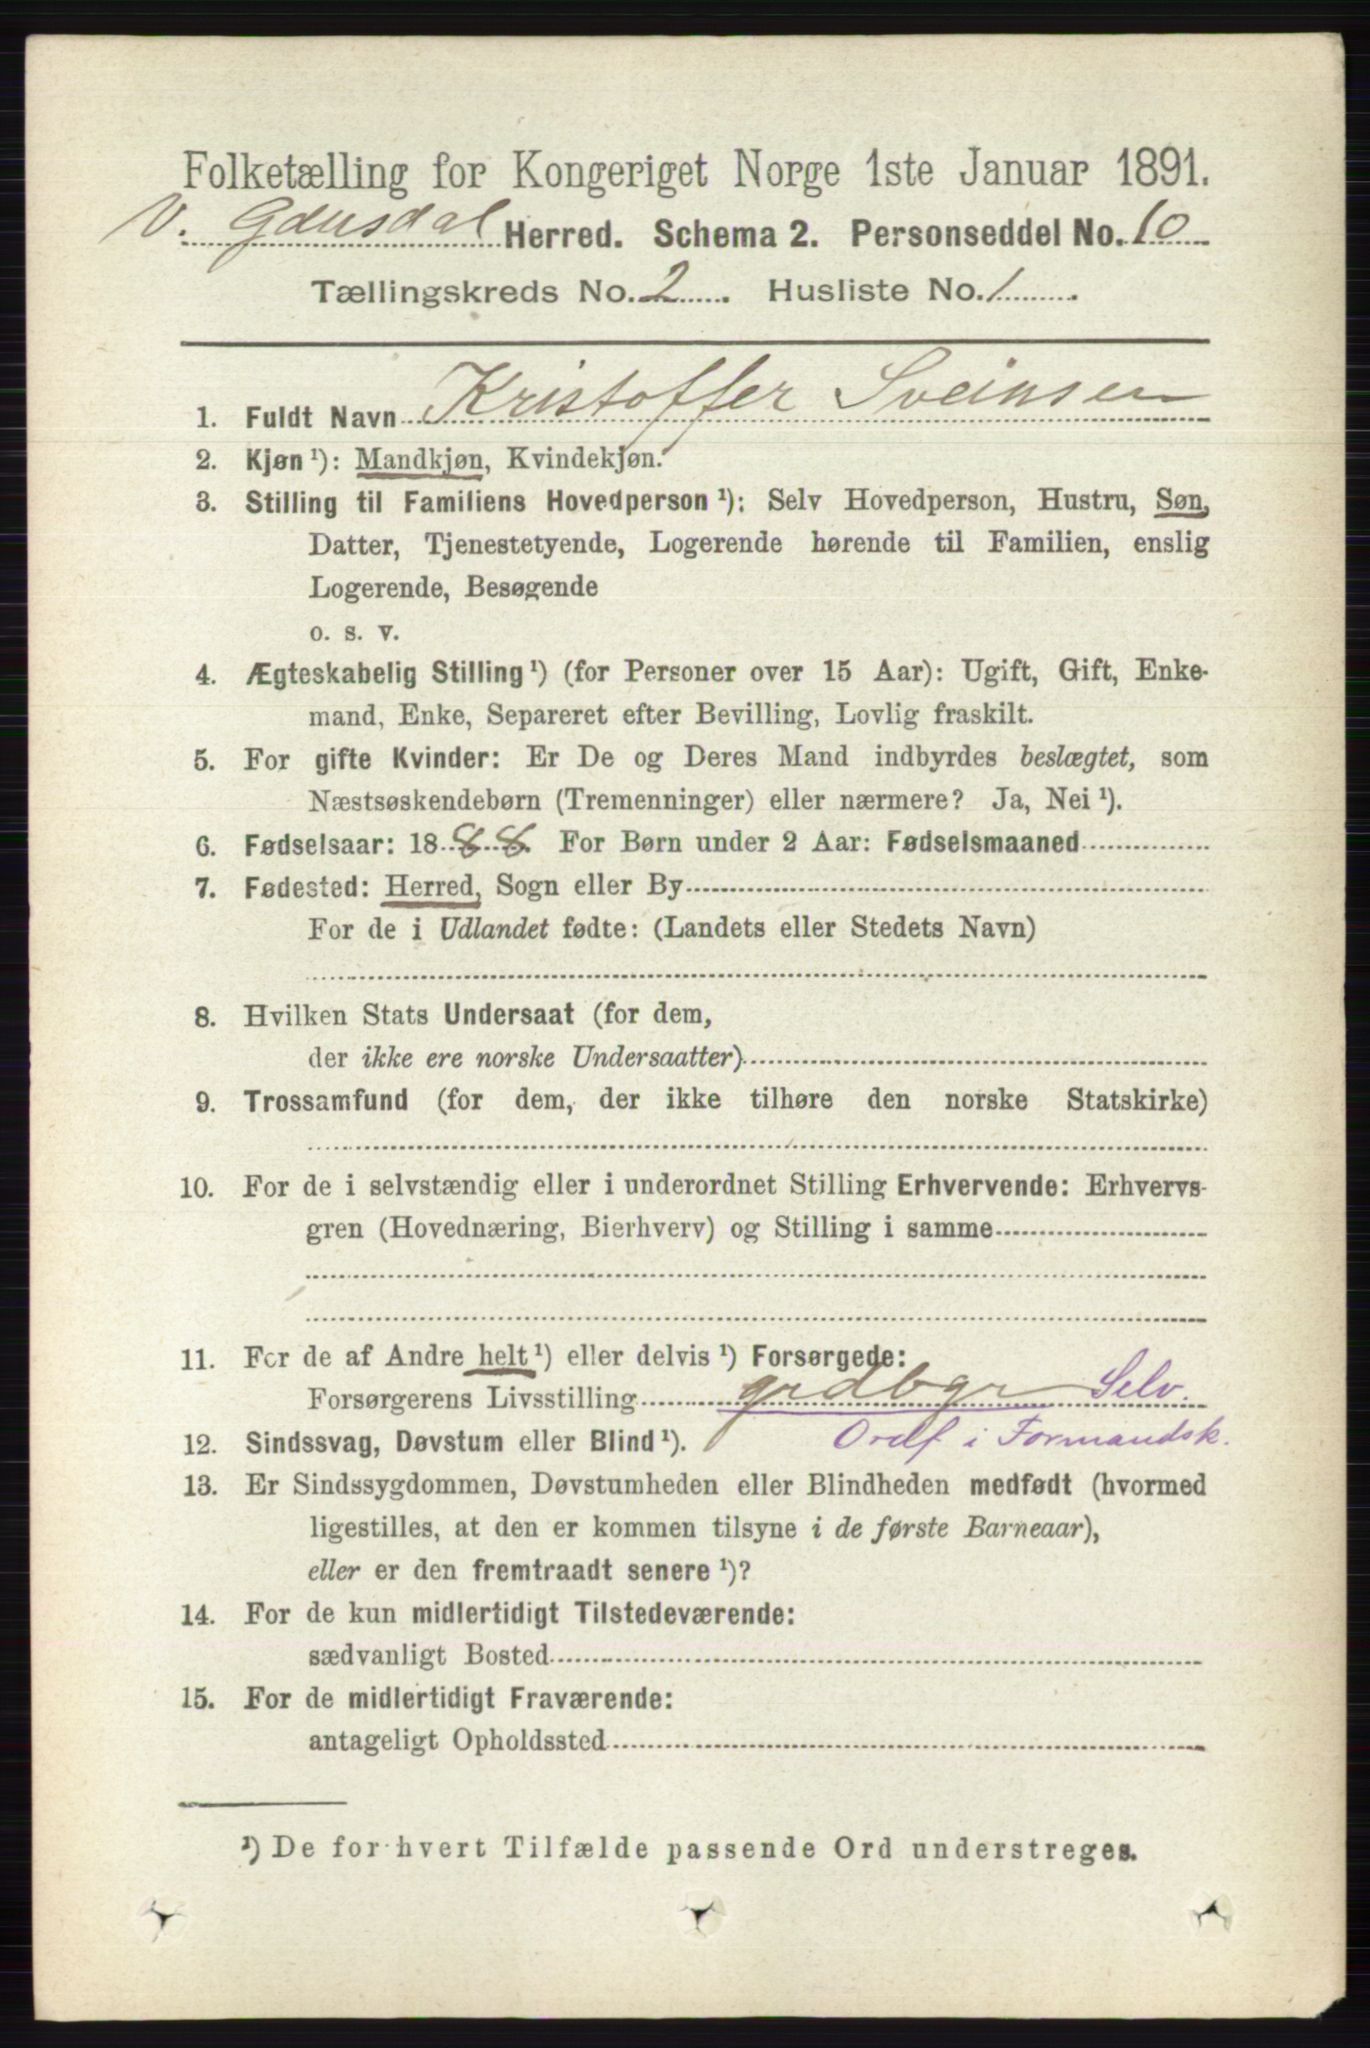 Folketælling for Kongeriget Norge 1ste Januar 1891.
V. Gausdal Herred. Schema 2. Personseddel No. 10
Tællingskreds No. 2. Husliste No. 1.
1. Fuldt Navn Kristoffer Sveinsen
2. Kjøn ¹): Mandkjøn, Kvindekjøn.
3. Stilling til Familiens Hovedperson ¹): Selv Hovedperson, Hustru, Søn,
Datter, Tjenestetyende, Logerende hørende til Familien, enslig
Logerende, Besøgende
o. s. v.
4. Ægteskabelig Stilling ¹) (for Personer over 15 Aar): Ugift, Gift, Enke-
mand, Enke, Separeret efter Bevilling, Lovlig fraskilt.
5. For gifte Kvinder: Er De og Deres Mand indbyrdes beslægtet, som
Næstsøskendebørn (Tremenninger) eller nærmere? Ja, Nei ¹).
6. Fødselsaar: 1888. For Børn under 2 Aar: Fødselsmaaned
7. Fødested: Herred, Sogn eller By
For de i Udlandet fødte: (Landets eller Stedets Navn)
8. Hvilken Stats Undersaat (for dem,
der ikke ere norske Undersaatter)
9. Trossamfund (for dem, der ikke tilhøre den norske Statskirke)
10. For de i selvstændig eller i underordnet Stilling Erhvervende: Erhvervs-
gren (Hovednæring, Bierhverv) og Stilling i samme
11. For de af Andre helt ¹) eller delvis ¹) Forsørgede:
Forsørgerens Livsstilling grdbgr Selv.
12. Sindssvag, Døvstum eller Blind ¹). Ordf i Formandsk.
13. Er Sindssygdommen, Døvstumheden eller Blindheden medfødt (hvormed
ligestilles, at den er kommen tilsyne i de første Barneaar),
eller er den fremtraadt senere ¹)?
14. For de kun midlertidigt Tilstedeværende:
sædvanligt Bosted
15. For de midlertidigt Fraværende:
antageligt Opholdssted
¹) De for hvert Tilfælde passende Ord understreges.